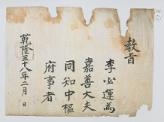 教旨
李必運爲
嘉善大夫
同知中樞
府事者
乾隆五十八年二月 日